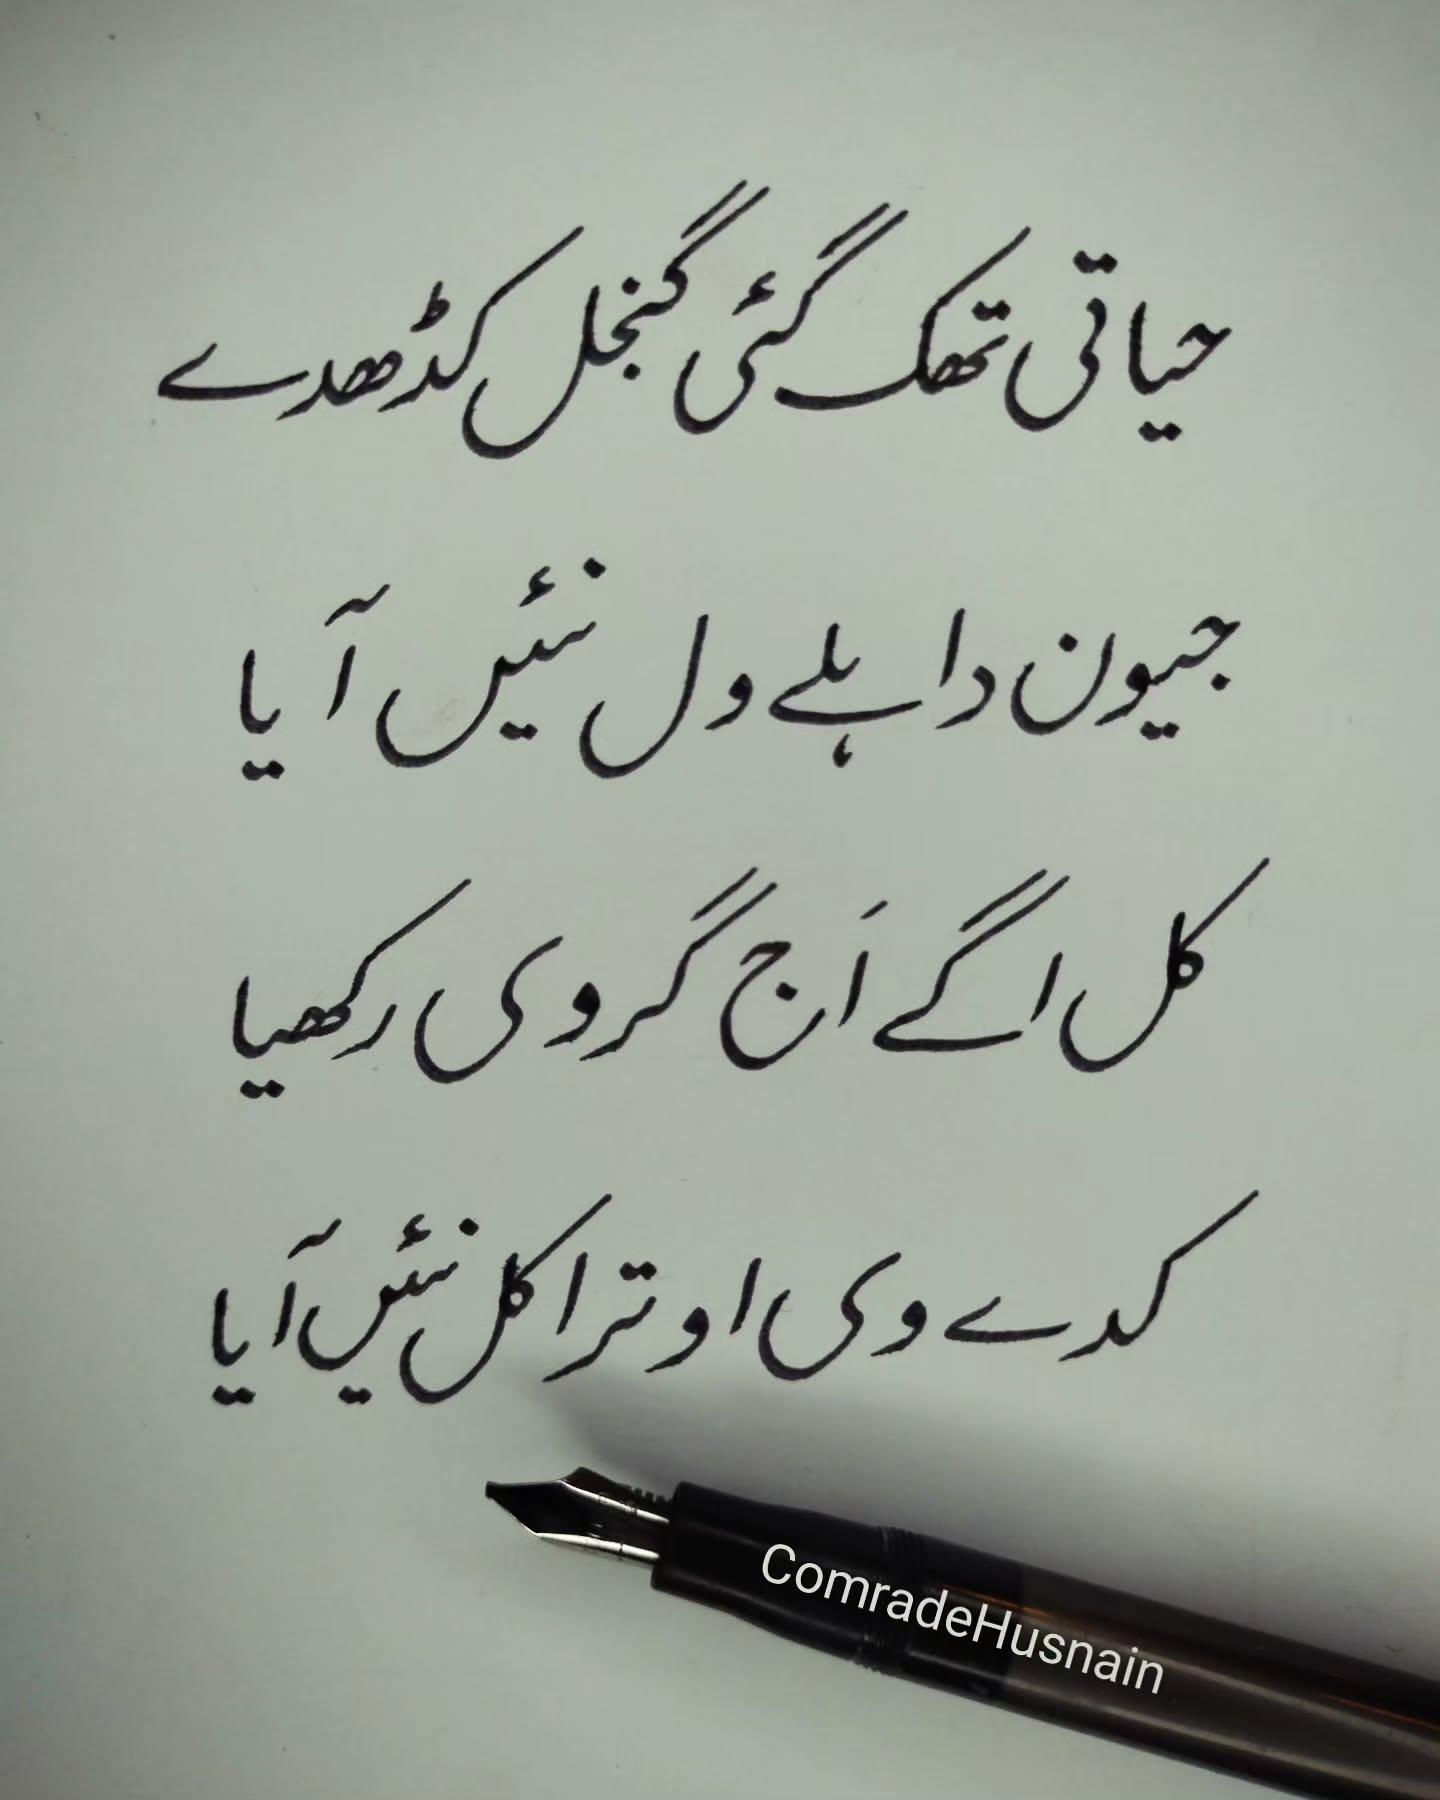 حیاتی تھک گئی گنجل کڈھدے
جیون دا ہلے ول نئیں آیا
کل اگے اَج گروی رکھیا
کدے وی او ترا کل نئیں آیا
ComradeHusnain